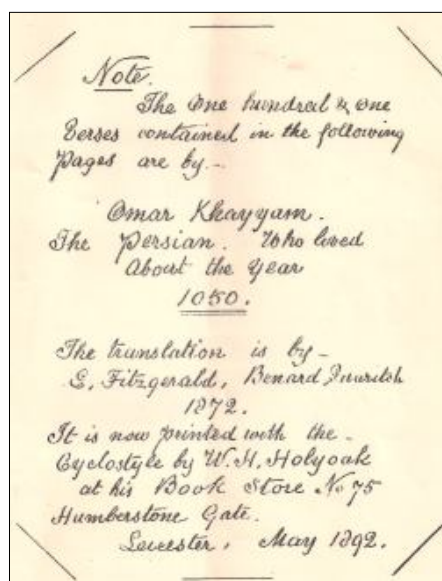 Note.
The One hundred & One
Verses contained in the following
Pages are by.-
Omar Khayyam.
The Persian. Who loved
About the Year
1050.
The translation is by-
E, Fitzgerald, Benard Quaritch
1872.
It is now printed with the-
Cyclostyle by W. H, Holyoak
at his Book Store No 75
Humberstone Gate.
Leicester, May 1892.